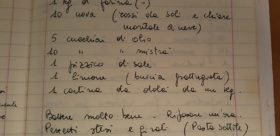 1 kg di farina (-)
10 uova (rossi da soli e chiare
montate a neve)
5 cucchiai di olio
10 " " mistrà
1 pizzico di sale
1 limone (buccia grattugiata)
1 cartina da dose da un kg.
Battere molto bene. Riposare un'ora.
stesi e (Pasta sottile